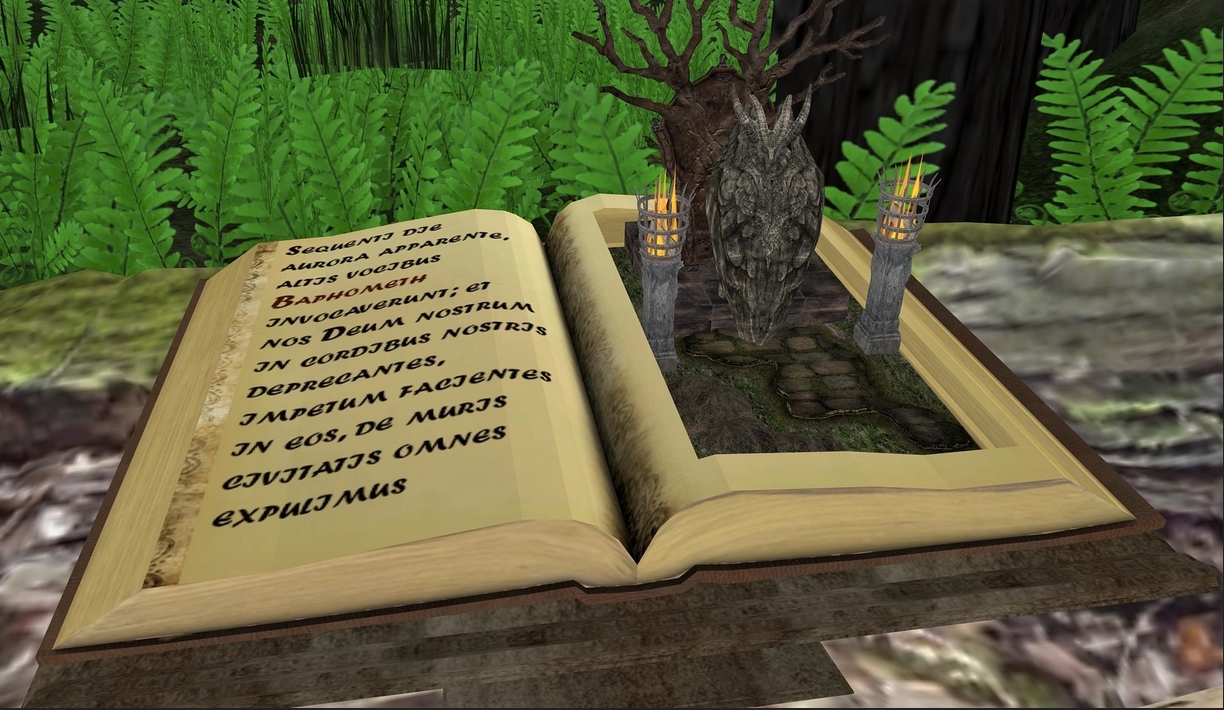 Sequenti die
aurora apparente,
altis vocibus
Baphometh
invocaverunt; et
nos Deum nostrum
in cordibus nostris
deprecantes,
impetum facientes
in eos, de muris
civitatis omnes
expulimus